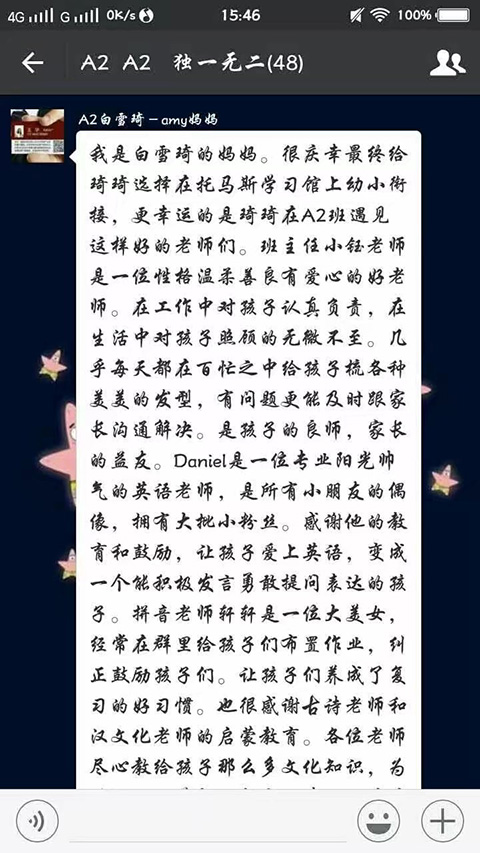 4G G 0K/s 15:46 100%
A2 A2 独一无二(48)
A2白雪琦－amy妈妈
我是白雪琦的妈妈。很庆幸最终给
琦琦选择在托马斯学习馆上幼小衔
接，更幸运的是琦琦在A2班遇见
这样好的老师们。班主任小钰老师
是一位性格温柔善良有爱心的好老
师。在工作中对孩子认真负责，在
生活中对孩子照顾的无微不至。几
乎每天都在百忙之中给孩子梳各种
美美的发型，有问题更能及时跟家
长沟通解决。是孩子的良师，家长
的益友。Daniel是一位专业阳光帅
气的英语老师，是所有小朋友的偶
像，拥有大批小粉丝。感谢他的教
育和鼓励，让孩子爱上英语，变成
一个能积极发言勇敢提问表达的孩
子。拼音老师轩轩是一位大美女，
经常在群里给孩子们布置作业，纠
正鼓励孩子们。让孩子们养成了复
习的好习惯。也很感谢古诗老师和
汉文化老师的启蒙教育。各位老师
尽心教给孩子那么多文化知识，为